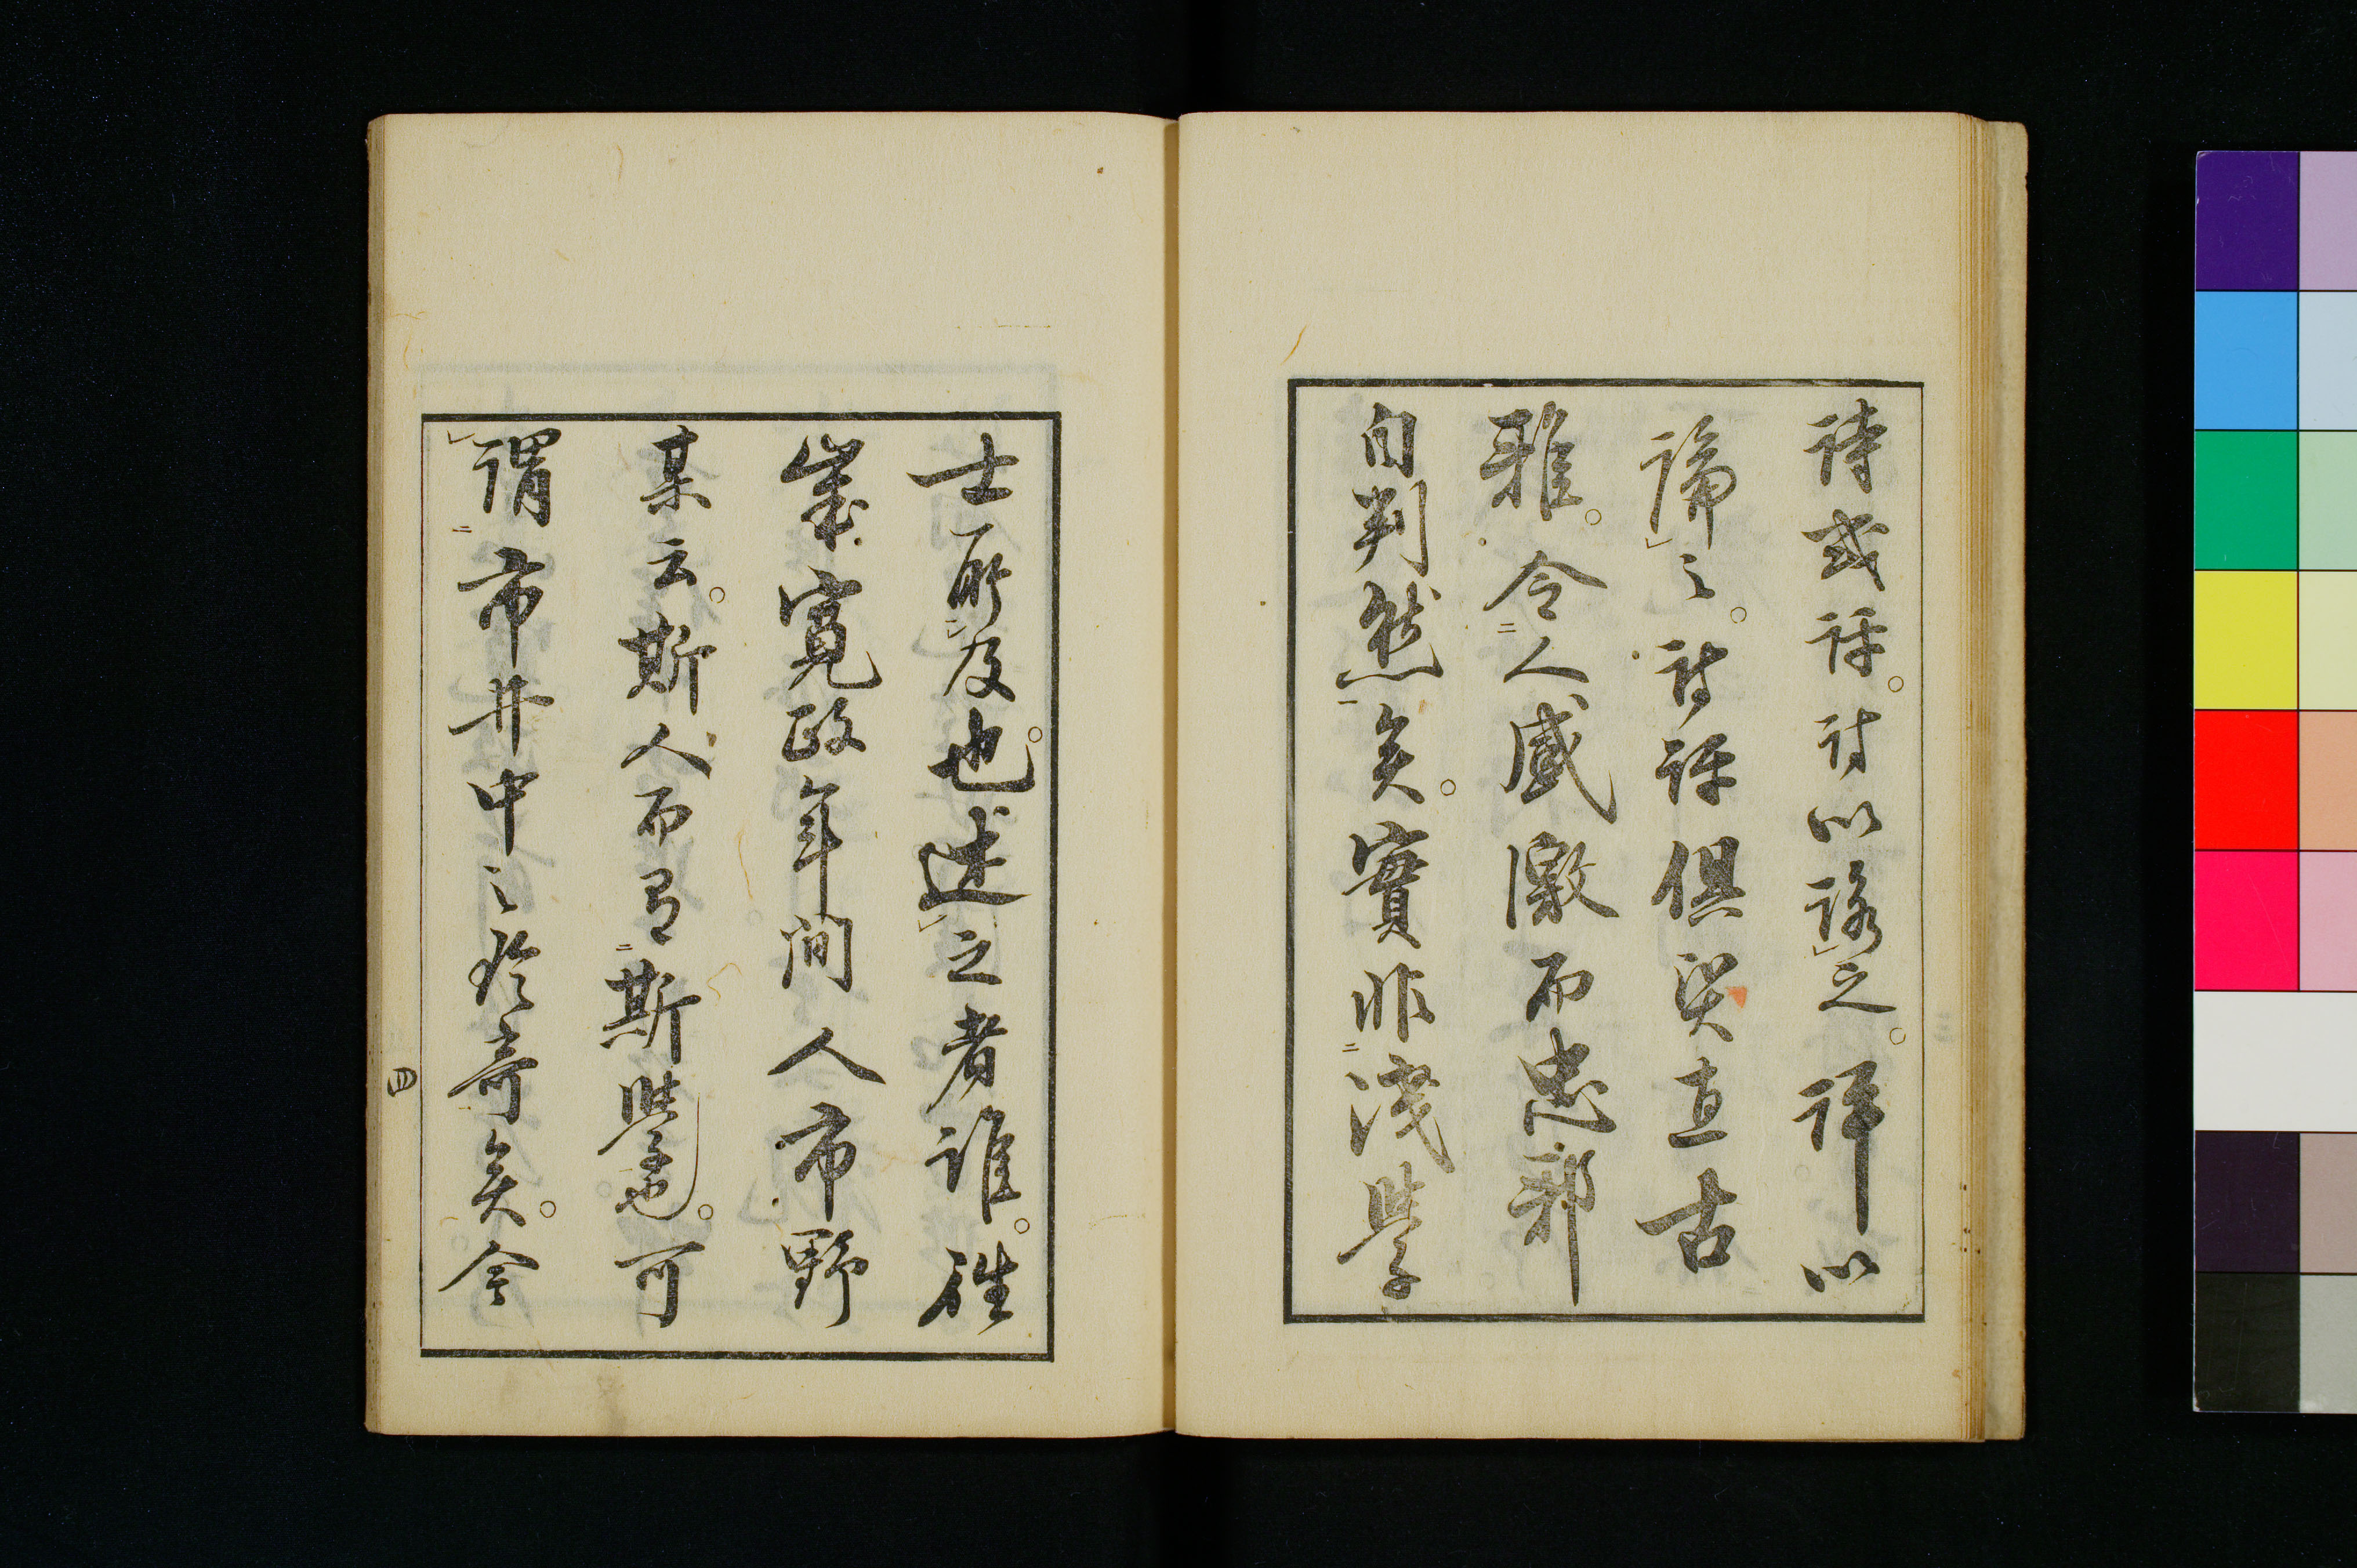 詩或評。詩以之。評以
諦之。詩評俱質直古
雅。令人感激而忠邪
自判然矣。實非淺學
士所及也。述之者誰。
寛政年間人市野
某云。斯人而有斯學也。可
謂市井中之珍奇矣。
四